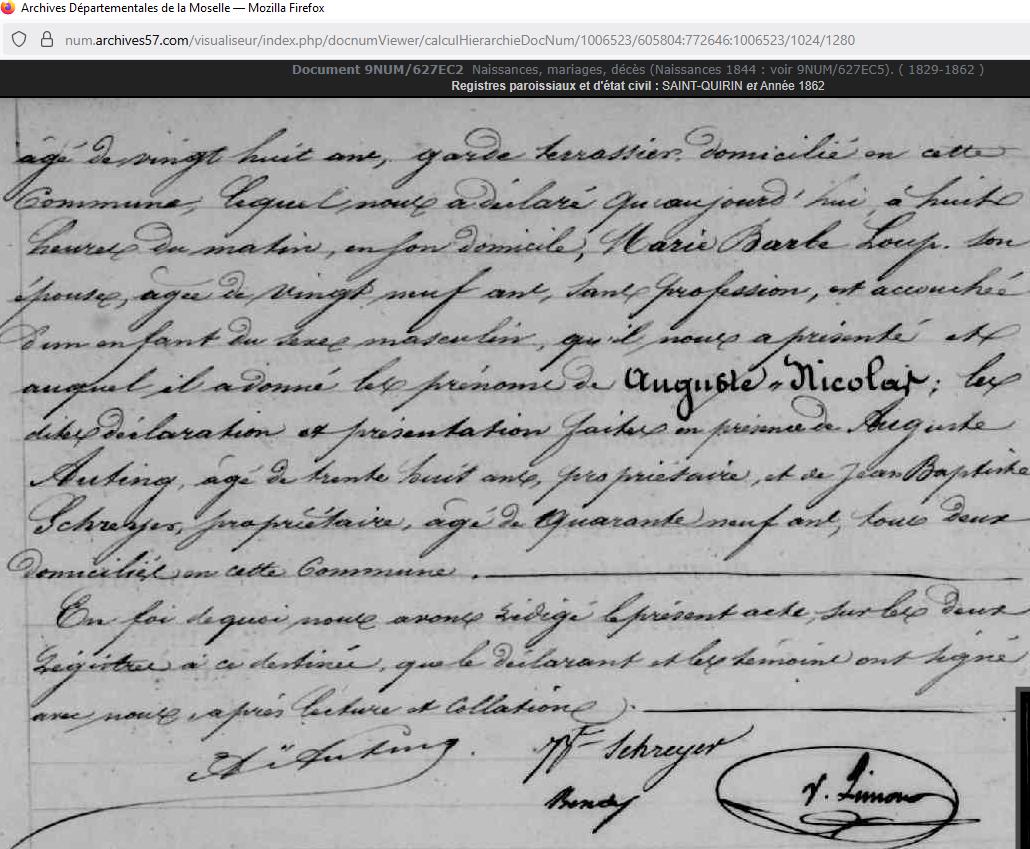 Archives Départementales de la Moselle — Mozilla Firefox
num.archives57.com/visualiseur/index.php/docnumViewer/calculHierarchieDocNum/1006523/605804:772646:1006523/1024/1280
Document 9NUM/627EC2 Naissances, mariages, décès (Naissances 1844 : voir 9NUM/627EC5). ( 1829-1862 )
Registres paroissiaux et d'état civil : SAINT-QUIRIN et Année 1862
âgé de vingt huit ans, garde terrassier domicilié en cette
Commune, lequel nous a déclaré qu'aujourd'hui, à huit
heures du matin, en son domicile, Marie Barbe Loup. son
épouse, âgée de vingt neuf ans, sans profession, est accouchée
d'un enfant du sexe masculin, qu'il nous a présenté et
auquel il a donné les prénoms de Auguste, Nicolas; les
dites déclaration et présentation faites en présence de Auguste
Auting, âgé de trente huit ans, propriétaire, et de Jean Baptiste
Schreyer, propriétaire, âgé de quarante neuf ans, tous deux
domiciliés en cette Commune.
En foi de quoi nous avons rédigé le présent acte, sur les deux
registres à ce destinés, que le déclarant et les témoins ont signé
avec nous, après lecture et Collation.
Auting. Schreyer